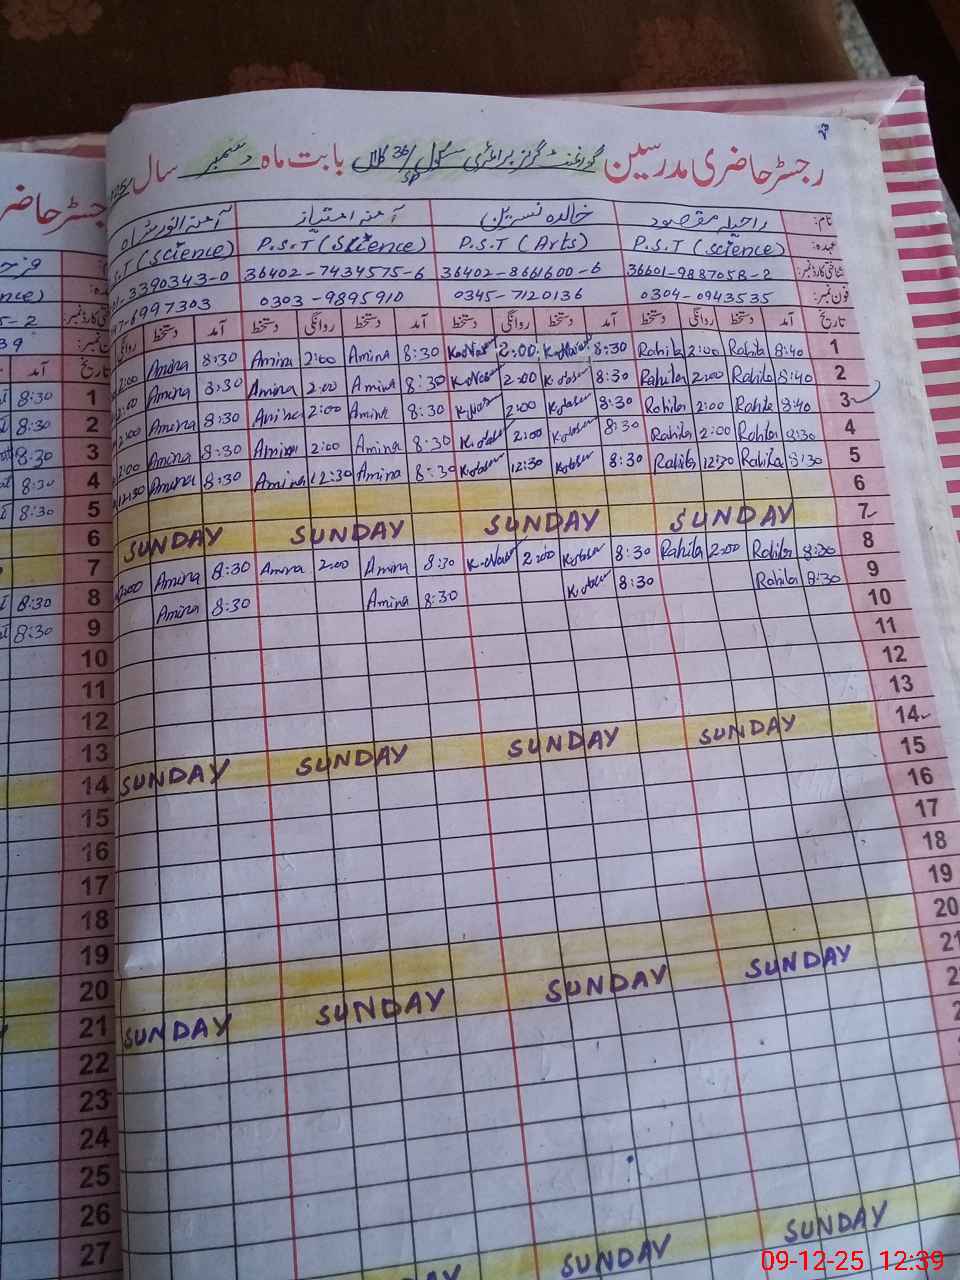 23
رجسٹر حاضری مدرسین گورنمنٹ گرلز پرائمری سکول 36/SP کلاں بابت ماہ دسمبر سال
نام: راحیلہ مقصود خالدہ نسرین آمنہ امتیاز
عہدہ: P.S.T (Science) P.S.T (Arts) P.S.T (Science) S.T (Science)
شناختی کارڈ نمبر: 36601-9887058-2 36402-8661600-6 36402-7434575-6 3390343-0
فون نمبر: 0304-0943535 0345-7120136 0303-9895910 6997303
تاریخ آمد دستخط روانگی دستخط آمد دستخط روانگی دستخط آمد دستخط روانگی دستخط آمد دستخط روانگی
1 8:40 Rahila 2:00 Rahila 8:30 K.Nasr 2:00 K.Nasr 8:30 Amina 2:00 Amina 8:30 Amina 2:00
2 8:40 Rahila 2:00 Rahila 8:30 2:00 8:30 Amina 2:00 Amina 8:30 Amina 2:00
3 8:40 Rahila 2:00 Rahila 8:30 2:00 8:30 Amina 2:00 Amina 8:30 Amina 2:00
4 8:30 Rahila 2:00 Rahila 8:30 2:00 8:30 Amina 2:00 Amina 8:30 Amina 2:00
5 8:30 Rahila 12:30 Rahila 8:30 12:30 8:30 Amina 12:30 Amina 8:30 Amina 12:30
6
7 SUNDAY SUNDAY SUNDAY SUNDAY
8 8:30 Rahila 2:00 Rahila 8:30 2:00 8:30 Amina 2:00 Amina 8:30 Amina 2:00
9 8:30 Rahila 8:30 8:30 Amina 8:30 Amina
10
11
12
13
14 SUNDAY SUNDAY SUNDAY SUNDAY
15
16
17
18
19
20
21 SUNDAY SUNDAY SUNDAY SUNDAY
SUNDAY SUNDAY SUNDAY
رجسٹر حاضر
2
39
آمد
تاریخ
1 8:30
2 8:30
3 8:30
4 8:30
5 8:30
6
7
8 8:30
9 8:30
10
11
12
13
14
15
16
17
18
19
20
21
22
23
24
25
26
27
09-12-25 12:39